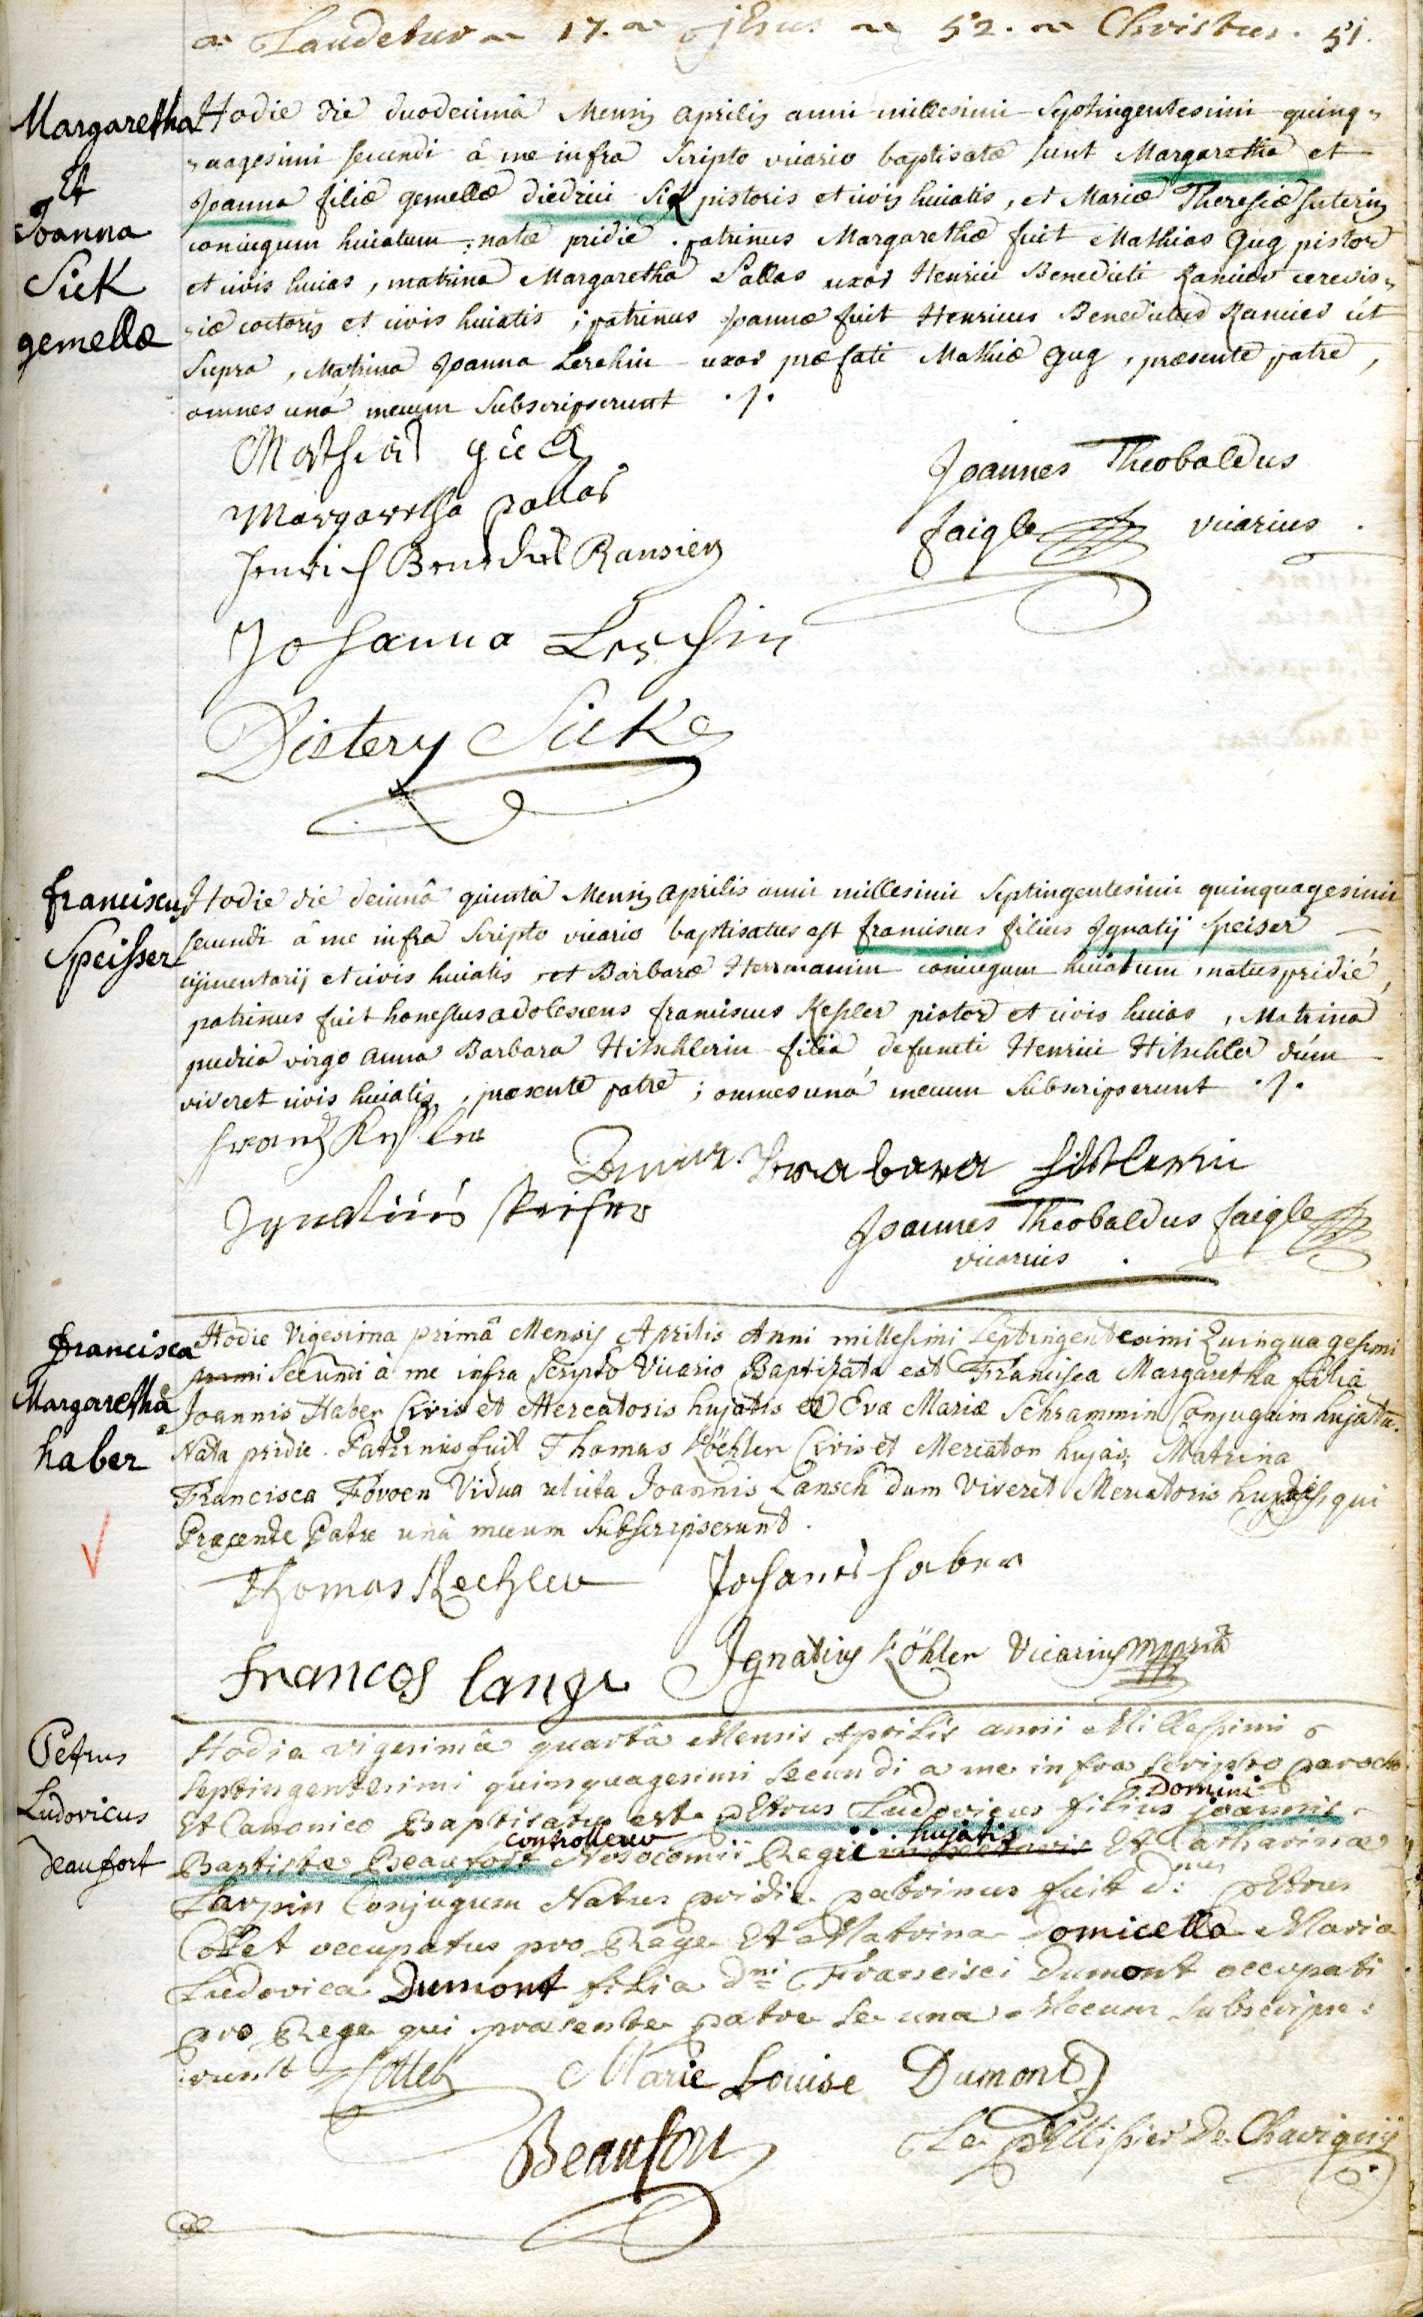 Laudetur 17. Jhus 52. Christus. 51.
Margaretha
Et
Joanna
Sick
gemellæ
Hodie die duodecimâ Mensis aprilis anni millesimi Septingentesimi quinq„
„uagesimi secundi â me infra Scripto vicario baptisatæ sunt Margaretha et
Joanna filiæ gemellæ diedrici Sick pistoris et civis huiatis, et Mariæ Theresiæ Suterin
coniugum huiatum, natæ pridie. patrinus Margarethæ fuit Mathias Gug pistor
et civis huias, matrina Margaretha Pallas uxor Henrici Benedicti Ransier cerevis„
„iæ coctoris et civis huiatis; patrinus Joannæ fuit Henricus Benedictus Ransier út
Supra, Matrina Joanna Lerchin uxor præfati Mathiæ Gug, præsente patre,
omnes unâ mecum Subscripserunt ./.
Mathias güg
Margaretha pallas
Henrich Benedict Ransier
Johanna Lerchin
Dietery Sicke
Joannes Theobaldus
faigle vicarius.
franciscus
Speisser
Hodie die decimâ quintâ Mensis aprilis anni millesimi Septingentesimi quinquagesimi
secundi â me infra Scripto vicario baptisatus est franciscus filius Ignatij Speiser
cæmentarij et civis huiatis, et Barbaræ Herrmannin coniugum huiatum, natus pridie,
patrinus fuit honestus adolescens franciscus Kesler pistor et civis huias, Matrina
pudica virgo anna Barbara Hitschlerin filia defuncti Henrici Hitschler dum
viveret civis huiatis, præsente patre; omnes unâ mecum Subscripserunt ./.
frantz Kessler
Anna Barabara
Ignatius Speiser
Joannes Theobaldus faigle
vicarius.
francisca
Margaretha
haber
Hodie Vigesima primâ Mensis Aprilis Anni millesimi Septingentesimi Quinquagesimi
primi Secundi à me infra Scripto Vicario Baptizata est Francisca Margaretha filia
Joannis Haber Civis et Mercatoris hujatis et Evæ Mariæ Schrammin Conjugum hujatū.
Nata pridie. Patrinus fuit Thomas Köchler Civis et Mercator hujas, Matrina
Francisca Fovoen Vidua relicta Joannis Lansch dum Viveret Mercatoris hujatis, qui
Præsente Patre unà mecum Subscripserunt.
Thomas Kechler Johanes haber
francos lange Ignatius Köhler Vicarius mppriâ
Petrus
Ludovicus
Beaufort
Hodia vigesimâ quartâ Mensis Aprilis anni Millessimi
Septingentesimi quinquagesimi Secundi a me infra Scripto parocho
Domini
Et Canonico Baptisatus est petrus Ludovicus filius Joannis
controlleur hujatis
Baptistæ Beaufort Nosocomii Regii Et Catharinæ
Larpin Conjugum Natus pridie patrinus fuit d: nus petrus
Collet occupatus pro Rege Et Matrina Domicella Maria
Ludovica Dumont filia dni Francisci Dumont occupati
pro Rege qui præsente patre se una Mecum Subscripse:
:runt Collet Marie Louise Dumont
Beaufort Le pellissier De Chavigny